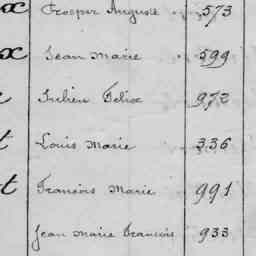 x Prosper Auguste 573
x Jean Marie 599
Julien Felix 972
t Louis Marie 336
t François Marie 991
Jean Marie François 933